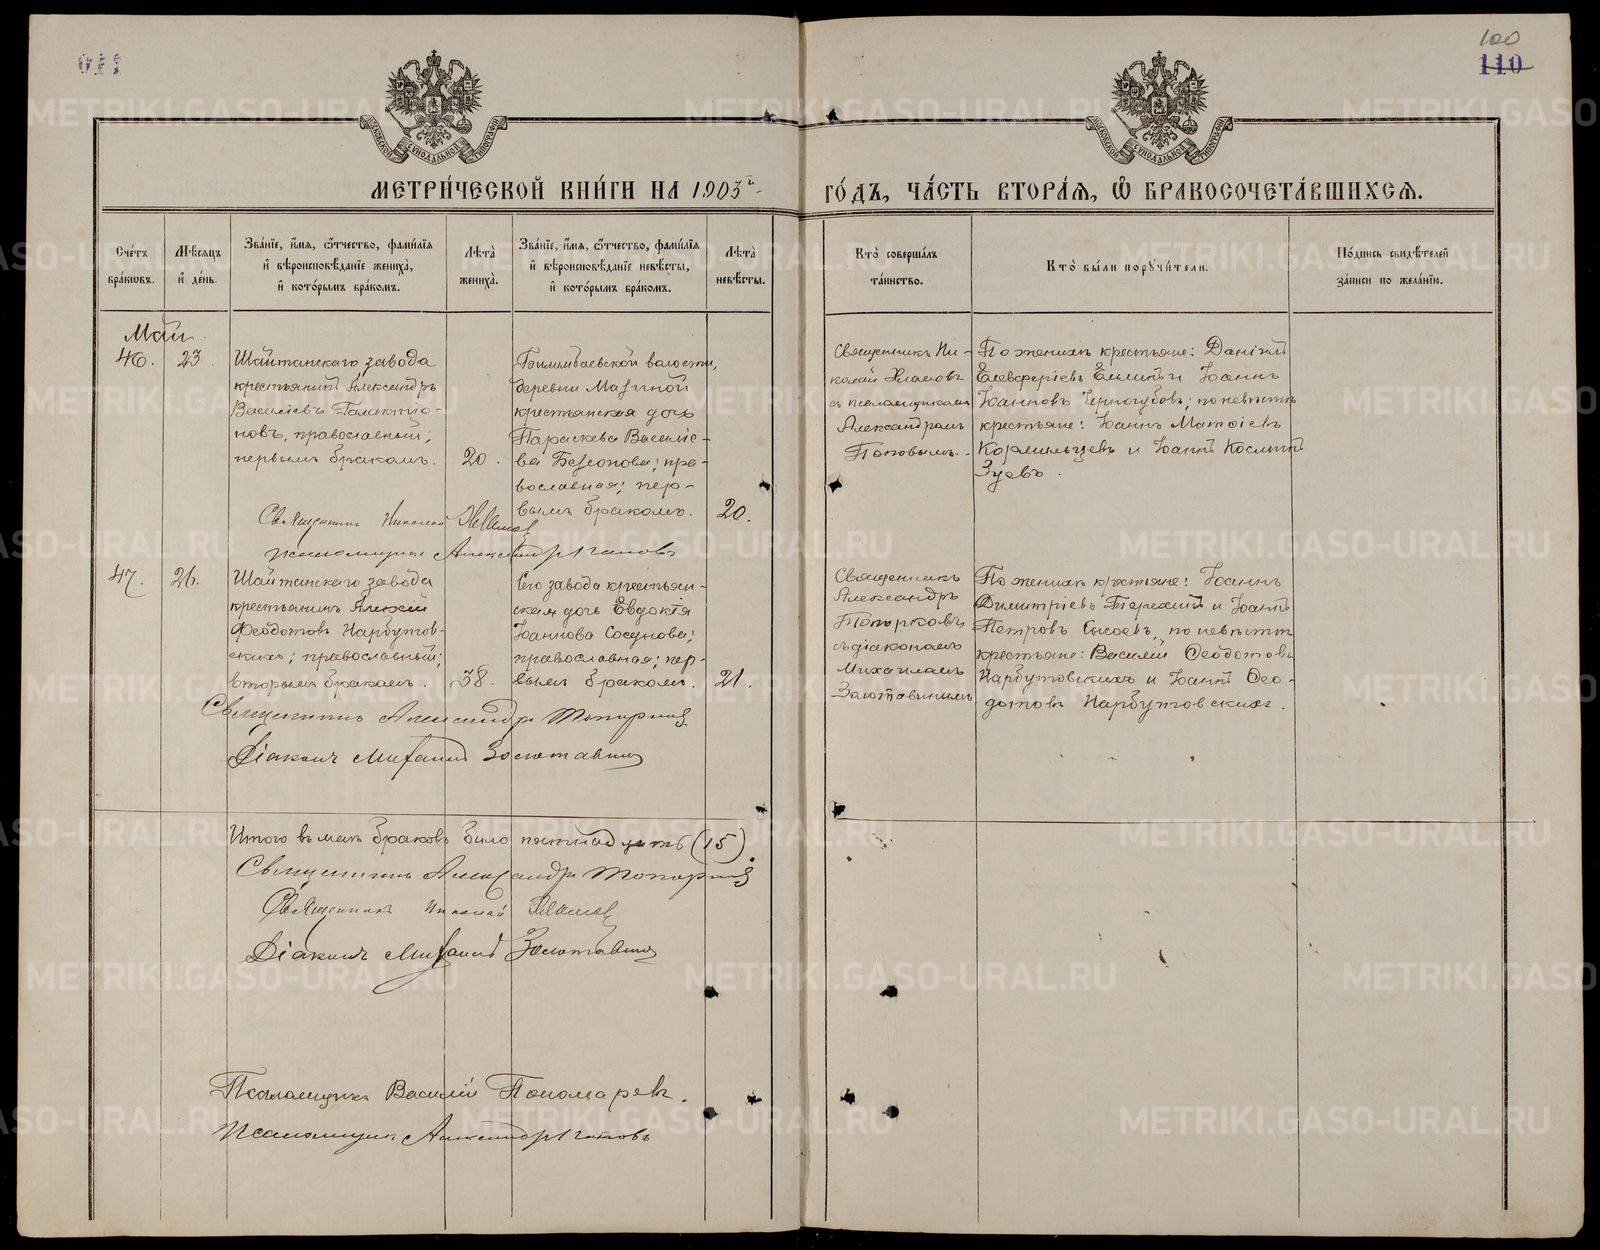 100
110
МЕТРИ́ЧЕСКОЙ КНИ́ГИ НА 1903й
ГО́ДЪ, ЧА́СТЬ ВТОРА́Я, Ѡ БРАКОСОЧЕТА́ВШИХСЯ.
Сче́тъ бра́ковъ.
Мѣ́сяцъ и де́нь.
Зва́нїе, и́мя, ѻ́тчество, фами́лїя и вѣроисповѣ́данїе жениха̀, и кото́рымъ бра́комъ.
Лѣ́та жениха̀.
Зва́нїе, и́мя, ѻ́тчество, фами́лїя и вѣроисповѣ́данїе невѣ́сты, и кото́рымъ бра́комъ.
Лѣ́та невѣ́сты.
Кто̀ соверша́лъ та́инство.
Кто̀ бы́ли поручи́тели.
По́дпись свидѣ́телей за́писи по жела́нїю.
Май.
46. 23.
Шайтанскаго завода
крестьянинъ Александръ
Василіевъ Галактіо-
новъ, православный;
первымъ бракомъ.
20.
Билимбаевской волости,
деревни Мазиной
крестьянская дочь
Параскева Василіе-
ва Безсонова; пра-
вославная; пер-
вымъ бракомъ.
20.
Священникъ Ни-
колай
съ псаломщикомъ
Александромъ
Поповымъ.
По женихѣ крестьяне: Даніилъ
Елевферіевъ и Іоаннъ
Іоанновъ Черногубовъ; по невѣстѣ
крестьяне: Іоаннъ Матѳіевъ
Кормильцевъ и Іоаннъ Косминъ
Зуевъ.
Священникъ Николай
Псаломщикъ Александръ Поповъ
47. 26.
Шайтанскаго завода
крестьянинъ Алексій
Ѳеодотовъ Нарбутов-
скихъ; православный;
вторымъ бракомъ.
38.
Его завода крестьян-
ская дочь Евдокія
Іоаннова Сосунова;
православная; пер-
вымъ бракомъ.
21.
Священникъ
Александръ
Топорковъ
съ діакономъ
Михаиломъ
Золотавинымъ
По женихѣ крестьяне: Іоаннъ
Димитріевъ и Іоаннъ
Петровъ Сысоевъ, по невѣстѣ
крестьяне: Василій Ѳеодотовъ
Нарбутовскихъ и Іоаннъ Ѳео-
дотовъ Нарбутовскихъ.
Священникъ Александръ Топорковъ
Діаконъ Михаилъ Золотавинъ
Итого въ маѣ браковъ было пятнадцать (15).
Священникъ Александръ Топорковъ
Священникъ Николай
Діаконъ Михаилъ Золотавинъ
Псаломщикъ Василій Пономаревъ.
Псаломщикъ Александръ Поповъ
METRIKI.GASO-URAL.RU